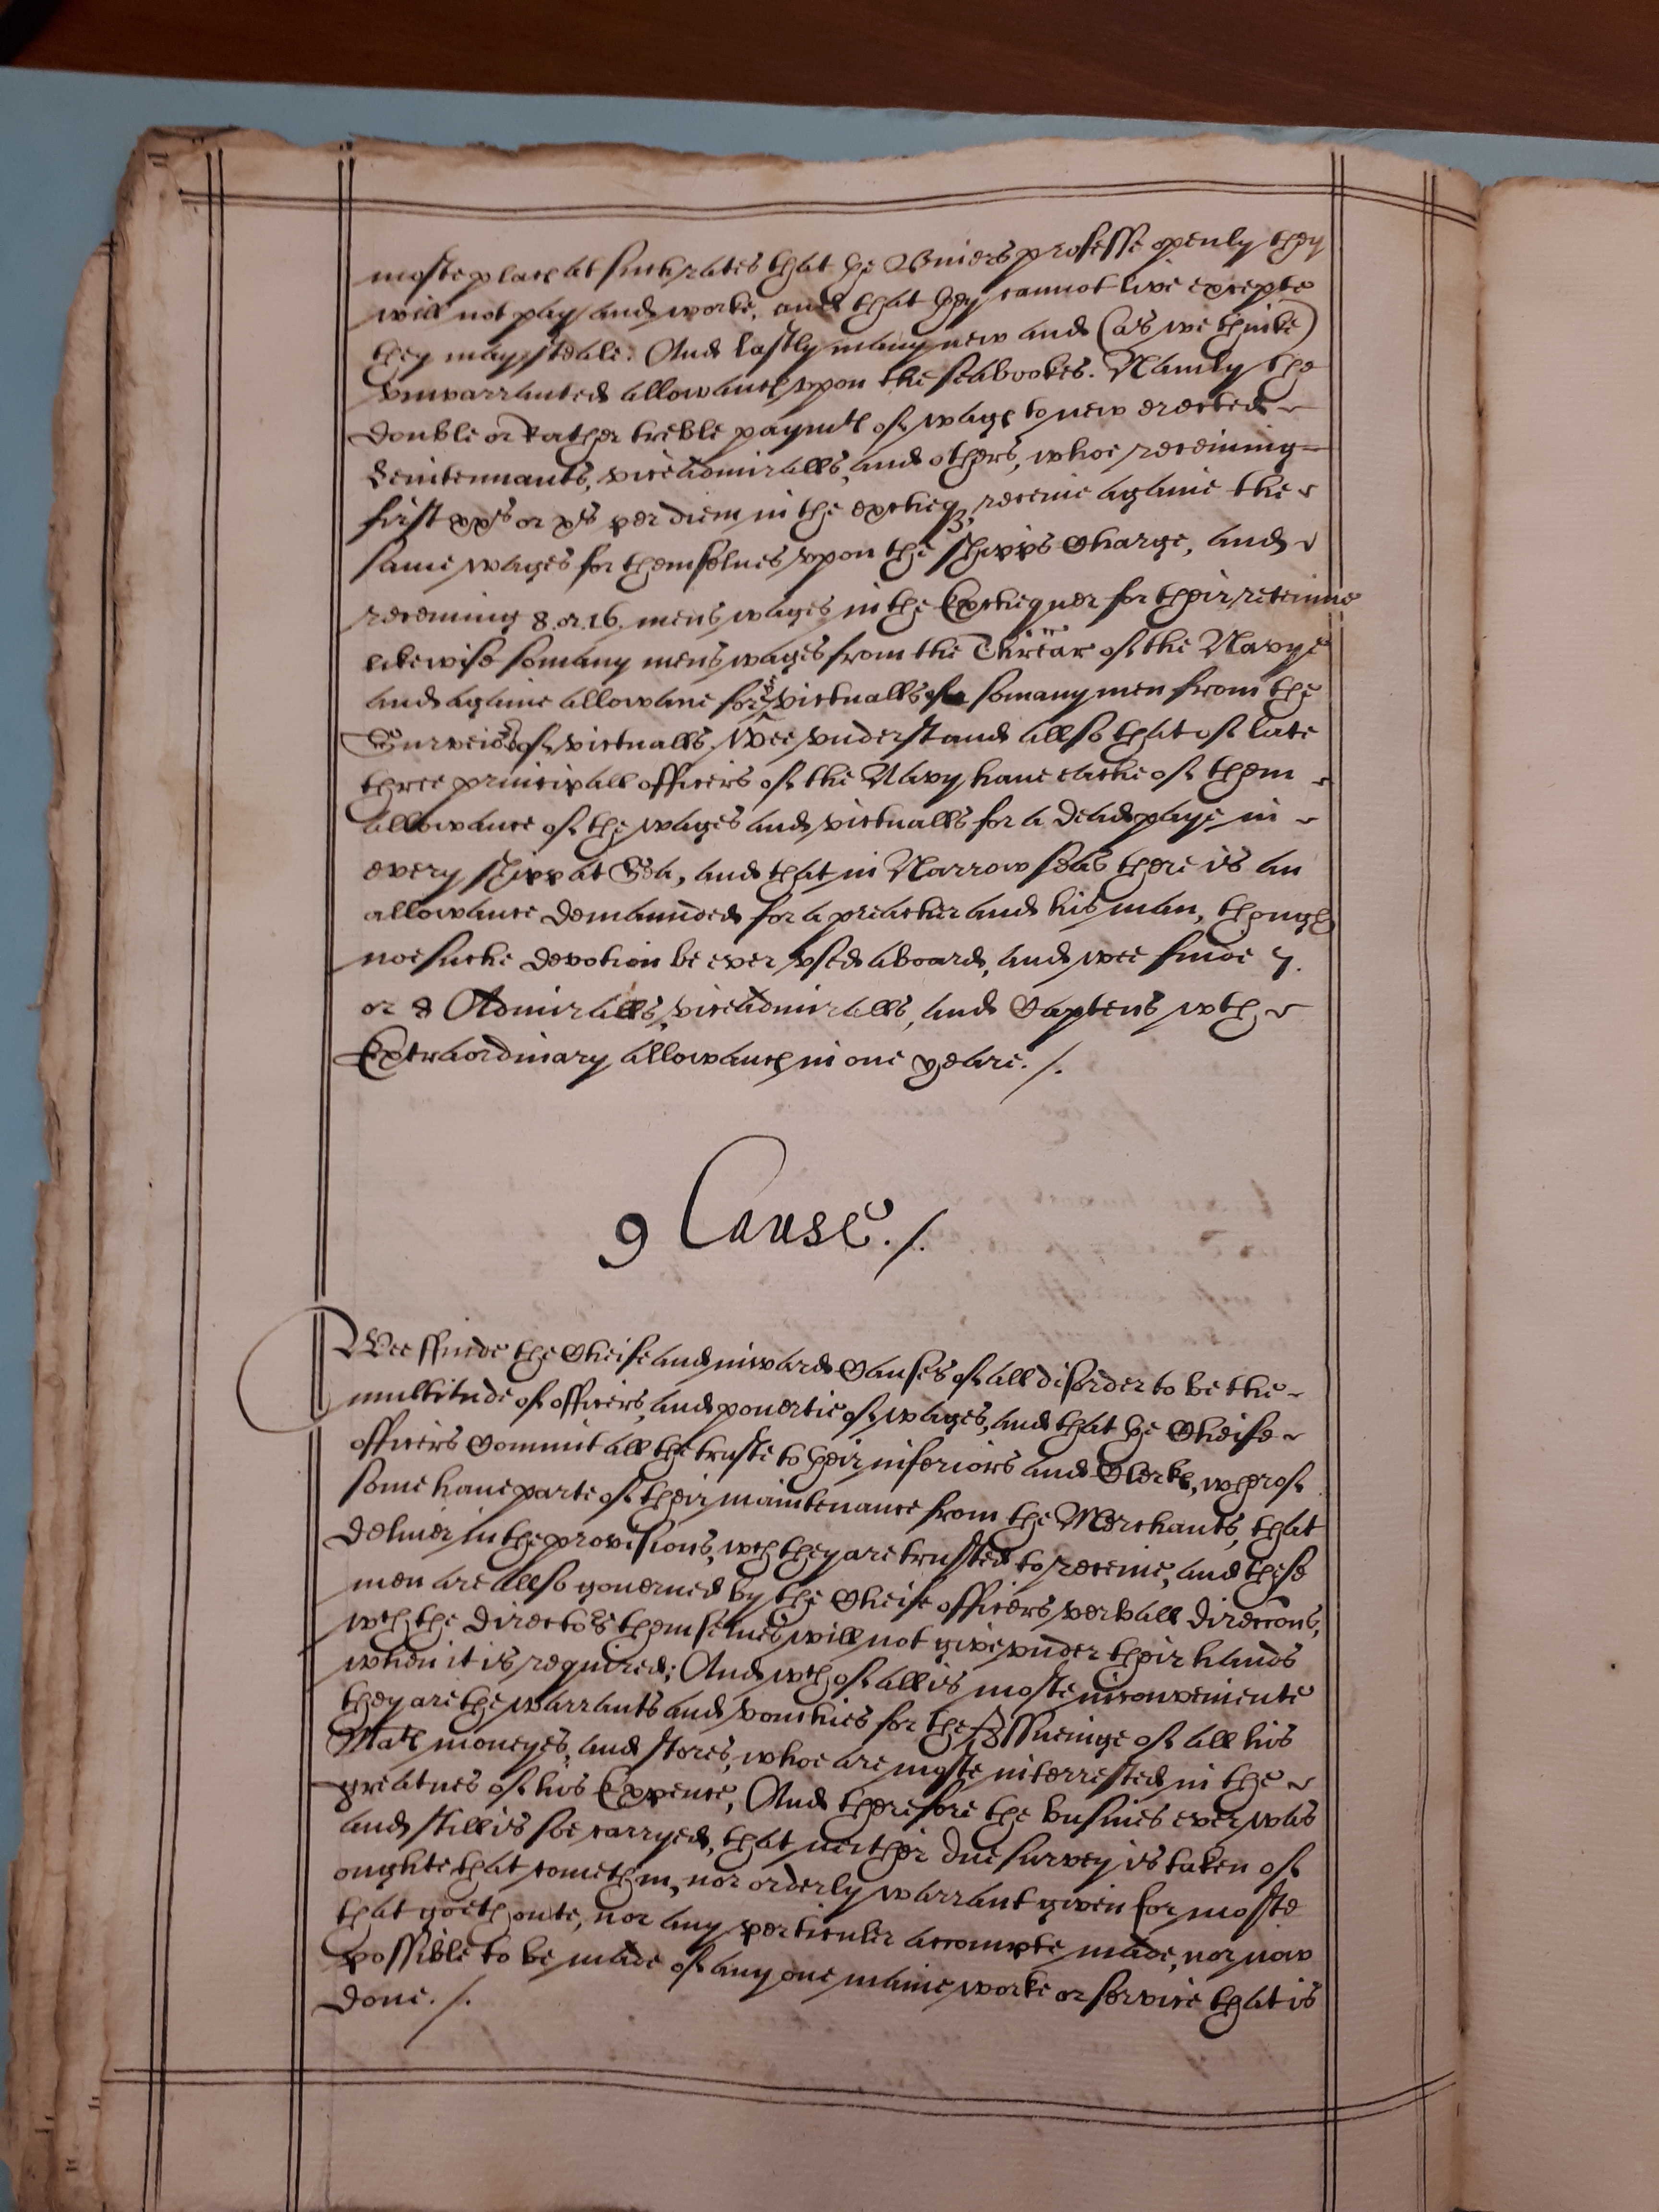 moste places at such rates that the Buiers professe openly they
will not pay and worke, and that they cannot live excepte
they may steale. And lastly many new and (as we thinke)
vnwarranted allowances vpon the seabookes. Namly the
double or rather treble paymts of wages to new erected
Leiutennants, viceadmiralls, and others, whoe receiuing
first xxs or xs per diem in the excheqz, receiue againe the
same wages for themselues vpon the shipps Charge, and
receiuing 8. or .16. mens wages in the Exchequer for their reteinue
likewise somany mens wages from the Threãr of the Navye
and againe allowanc for ye victualls of somany men from the
Surveiors of victualls. Wee vnderstand allso that of late
three principall officers of the Navy haue eache of them
allowance of the wages and victualls for a dead paye in
every shipp at Sea, and that in Narrow seas there is an
allowance demaunded for a preacher and his man, though
noe suche devotion be ever vsed aboard, and wee finde 7.
or 8 Admiralls, viceadmiralls, and Captens wth
Extraordinary allowances in one yeare. /.
9 Cause. /.
Wee ffinde the Cheife and inward Causes of all disorder to be the
multitude of officers, and pouertie of wages, and that the Cheife
officers Commit all the truste to their inferiors and Clerks, wherof
some haue parte of their maintenance from the Merchants, that
deliuer in the provisions, wch they are trusted to receiue, and these
men are allso gouerned by the Cheife officers verball direccons,
wch the directors themselues will not give vnder their hands
when it is required; And wch of all is moste inconveniente
they are the warrants and vouchies for the Issueinge of all his
Mats moneyes, and stores, whoe are moste interrested in the
greatnes of his Expence, And therefore the busines ever was
and still is soe carryed, that neither due survey is taken of
oughte that cometh in, nor orderly warrant given for moste
that goeth oute, nor any perticuler accompte made, nor now
possible to be made of any one maine worke or service that is
done. /.